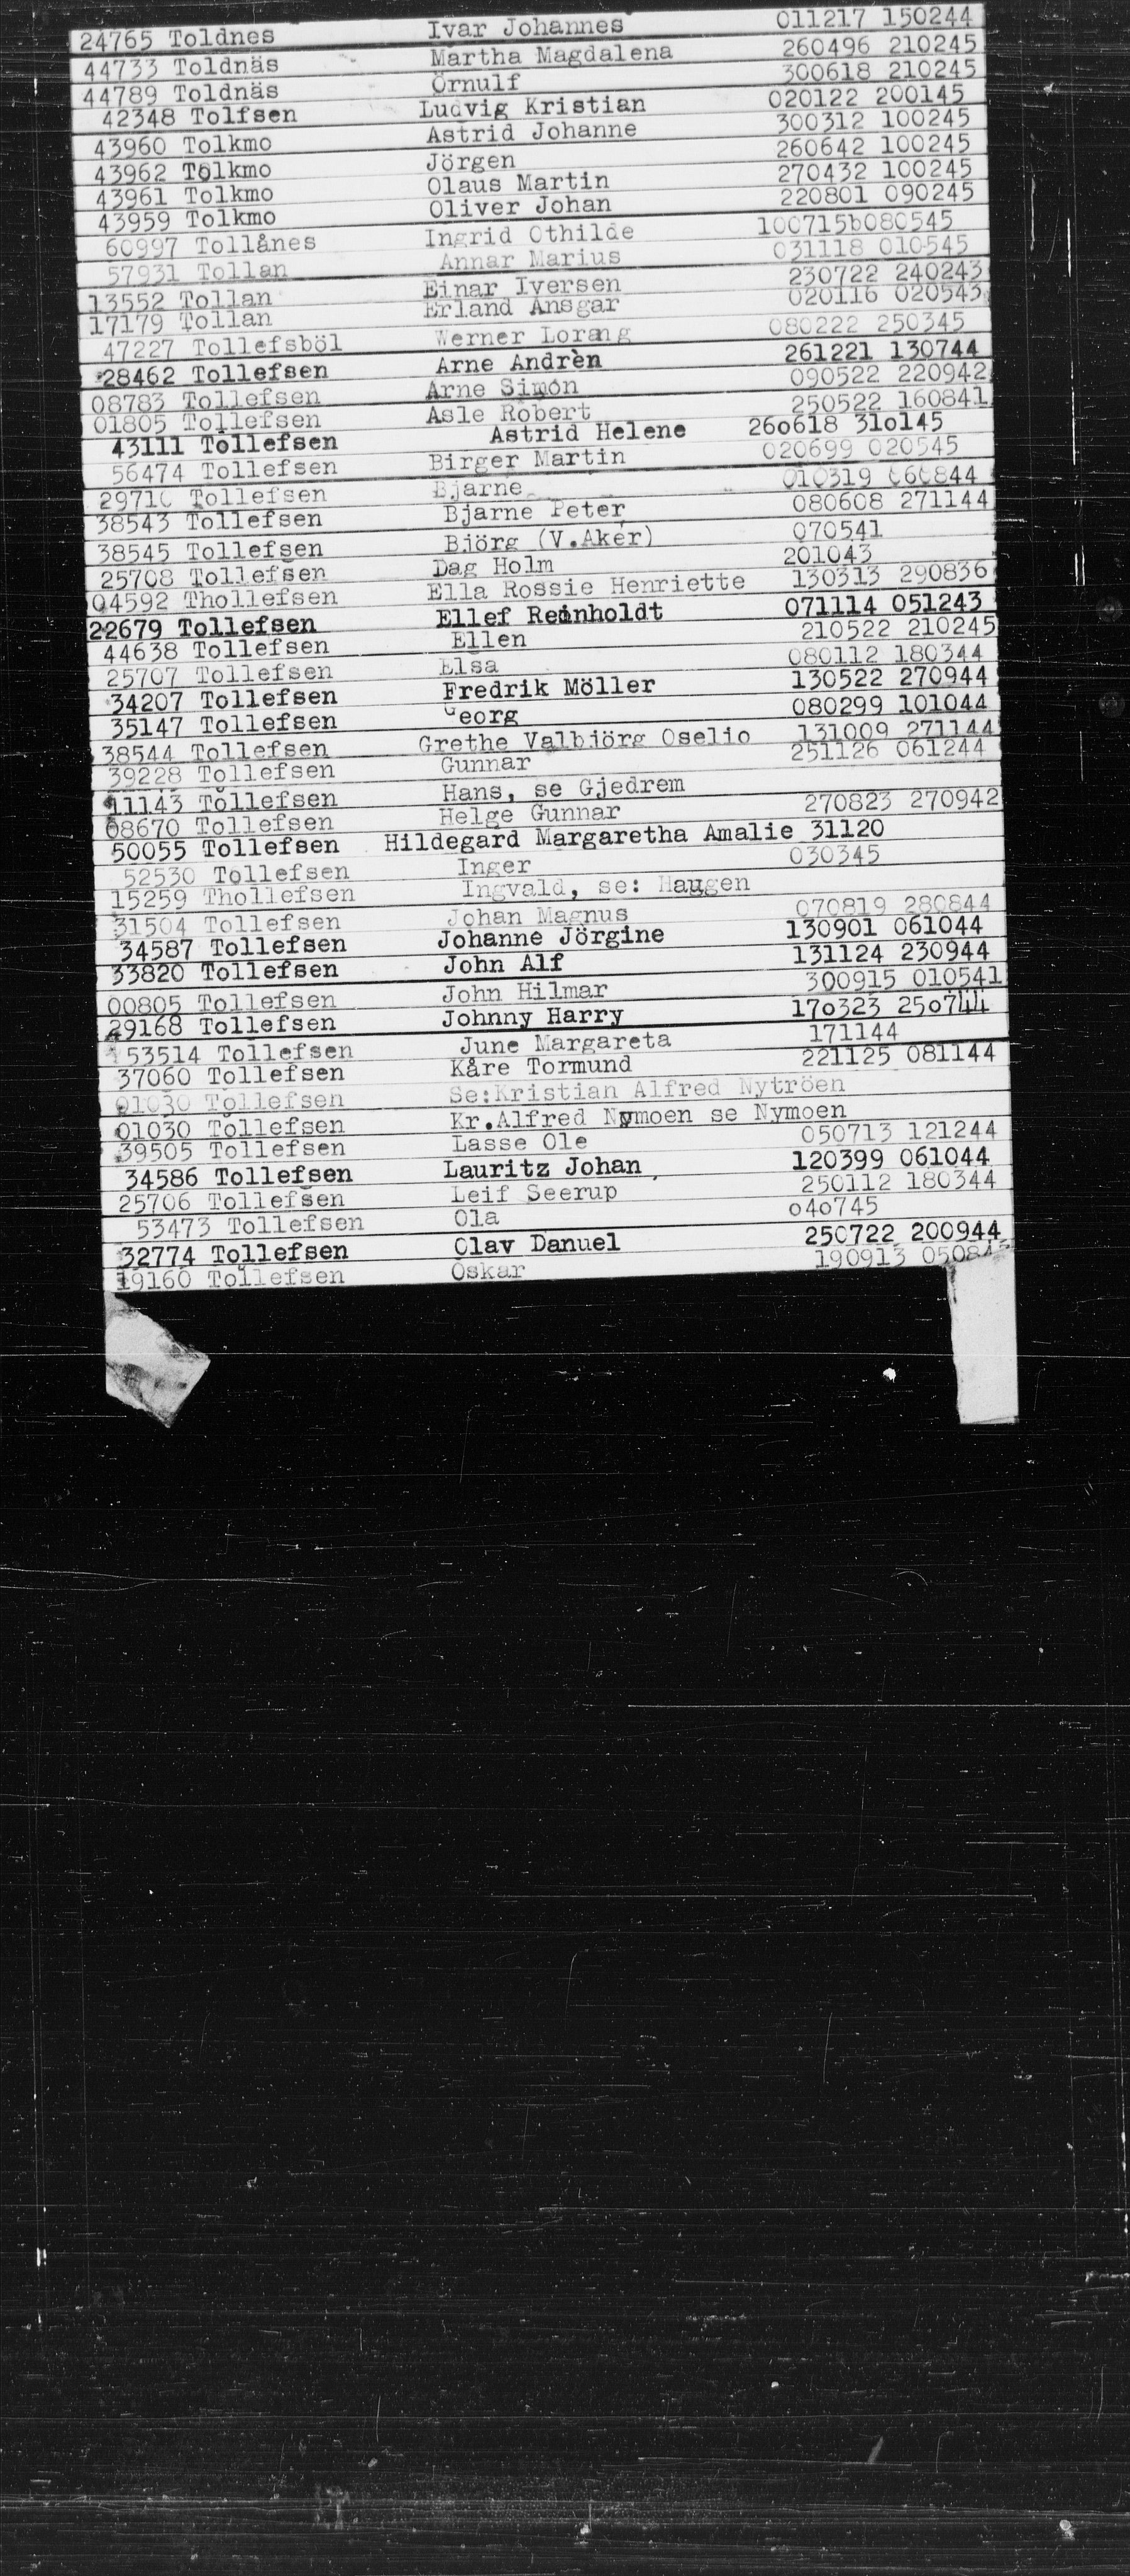 24765 Toldnes Ivar Johannes 011217 150244
44733 Toldnäs Martha Magdalena 260496 210245
44789 Toldnäs Örnulf 300618 210245
42348 Tolfsen Ludvig Kristian 020122 200145
43960 Tolkmo Astrid Johanne 300312 100245
43962 Tolkmo Jörgen 260642 100245
43961 Tolkmo Olaus Martin 270432 100245
43959 Tolkmo Oliver Johan 220801 090245
60997 Tollånes Ingrid Othilde 100715b080545
57931 Tollan Annar Marius 031118 010545
13552 Tollan Einar Iversen 230722 240243
17179 Tollan Erland Ansgar 020116 020543
47227 Tollefsböl Werner Lorang 080222 250345
28462 Tollefsen Arne Andrèn 261221 130744
08783 Tollefsen Arne Simon 090522 220942
01805 Tollefsen Asle Robert 250522 160841
43111 Tollefsen Astrid Helene 260618 310145
56474 Tollefsen Birger Martin 020699 020545
29710 Tollefsen Bjarne 010319
38543 Tollefsen Bjarne Peter 080608 271144
38545 Tollefsen Björg (V.Aker) 070541
25708 Tollefsen Dag Holm 201043
04592 Thollefsen Ella Rossie Henriette 130313 290836
22679 Tollefsen Ellef Reinholdt 071114 051243
44638 Tollefsen Ellen 210522 210245
25707 Tollefsen Elsa 080112 180344
34207 Tollefsen Fredrik Möller 130522 270944
35147 Tollefsen Georg 080299 101044
38544 Tollefsen Grethe Valbjörg Oselio 131009 271144
39228 Tollefsen Gunnar 251126 061244
11143 Tollefsen Hans, se Gjedrem
08670 Tollefsen Helge Gunnar 270823 270942
50055 Tollefsen Hildegard Margaretha Amalie 31120
52530 Tollefsen Inger 030345
15259 Thollefsen Ingvald, se: Haugen
31504 Tollefsen Johan Magnus 070819 280844
34587 Tollefsen Johanne Jörgine 130901 061044
33820 Tollefsen John Alf 131124 230944
00805 Tollefsen John Hilmar 300915 010541
29168 Tollefsen Johnny Harry 170323 250744
53514 Tollefsen June Margareta 171144
37060 Tollefsen Kåre Tormund 221125 081144
01030 Tollefsen Se:Kristian Alfred Nytröen
01030 Tollefsen Kr.Alfred Nymoen se Nymoen
39505 Tollefsen Lasse Ole 050713 121244
34586 Tollefsen Lauritz Johan 120399 061044
25706 Tollefsen Leif Seerup 250112 180344
53473 Tollefsen Ola 040745
32774 Tollefsen Olav Danuel 250722 200944
19160 Tollefsen Oskar 190913